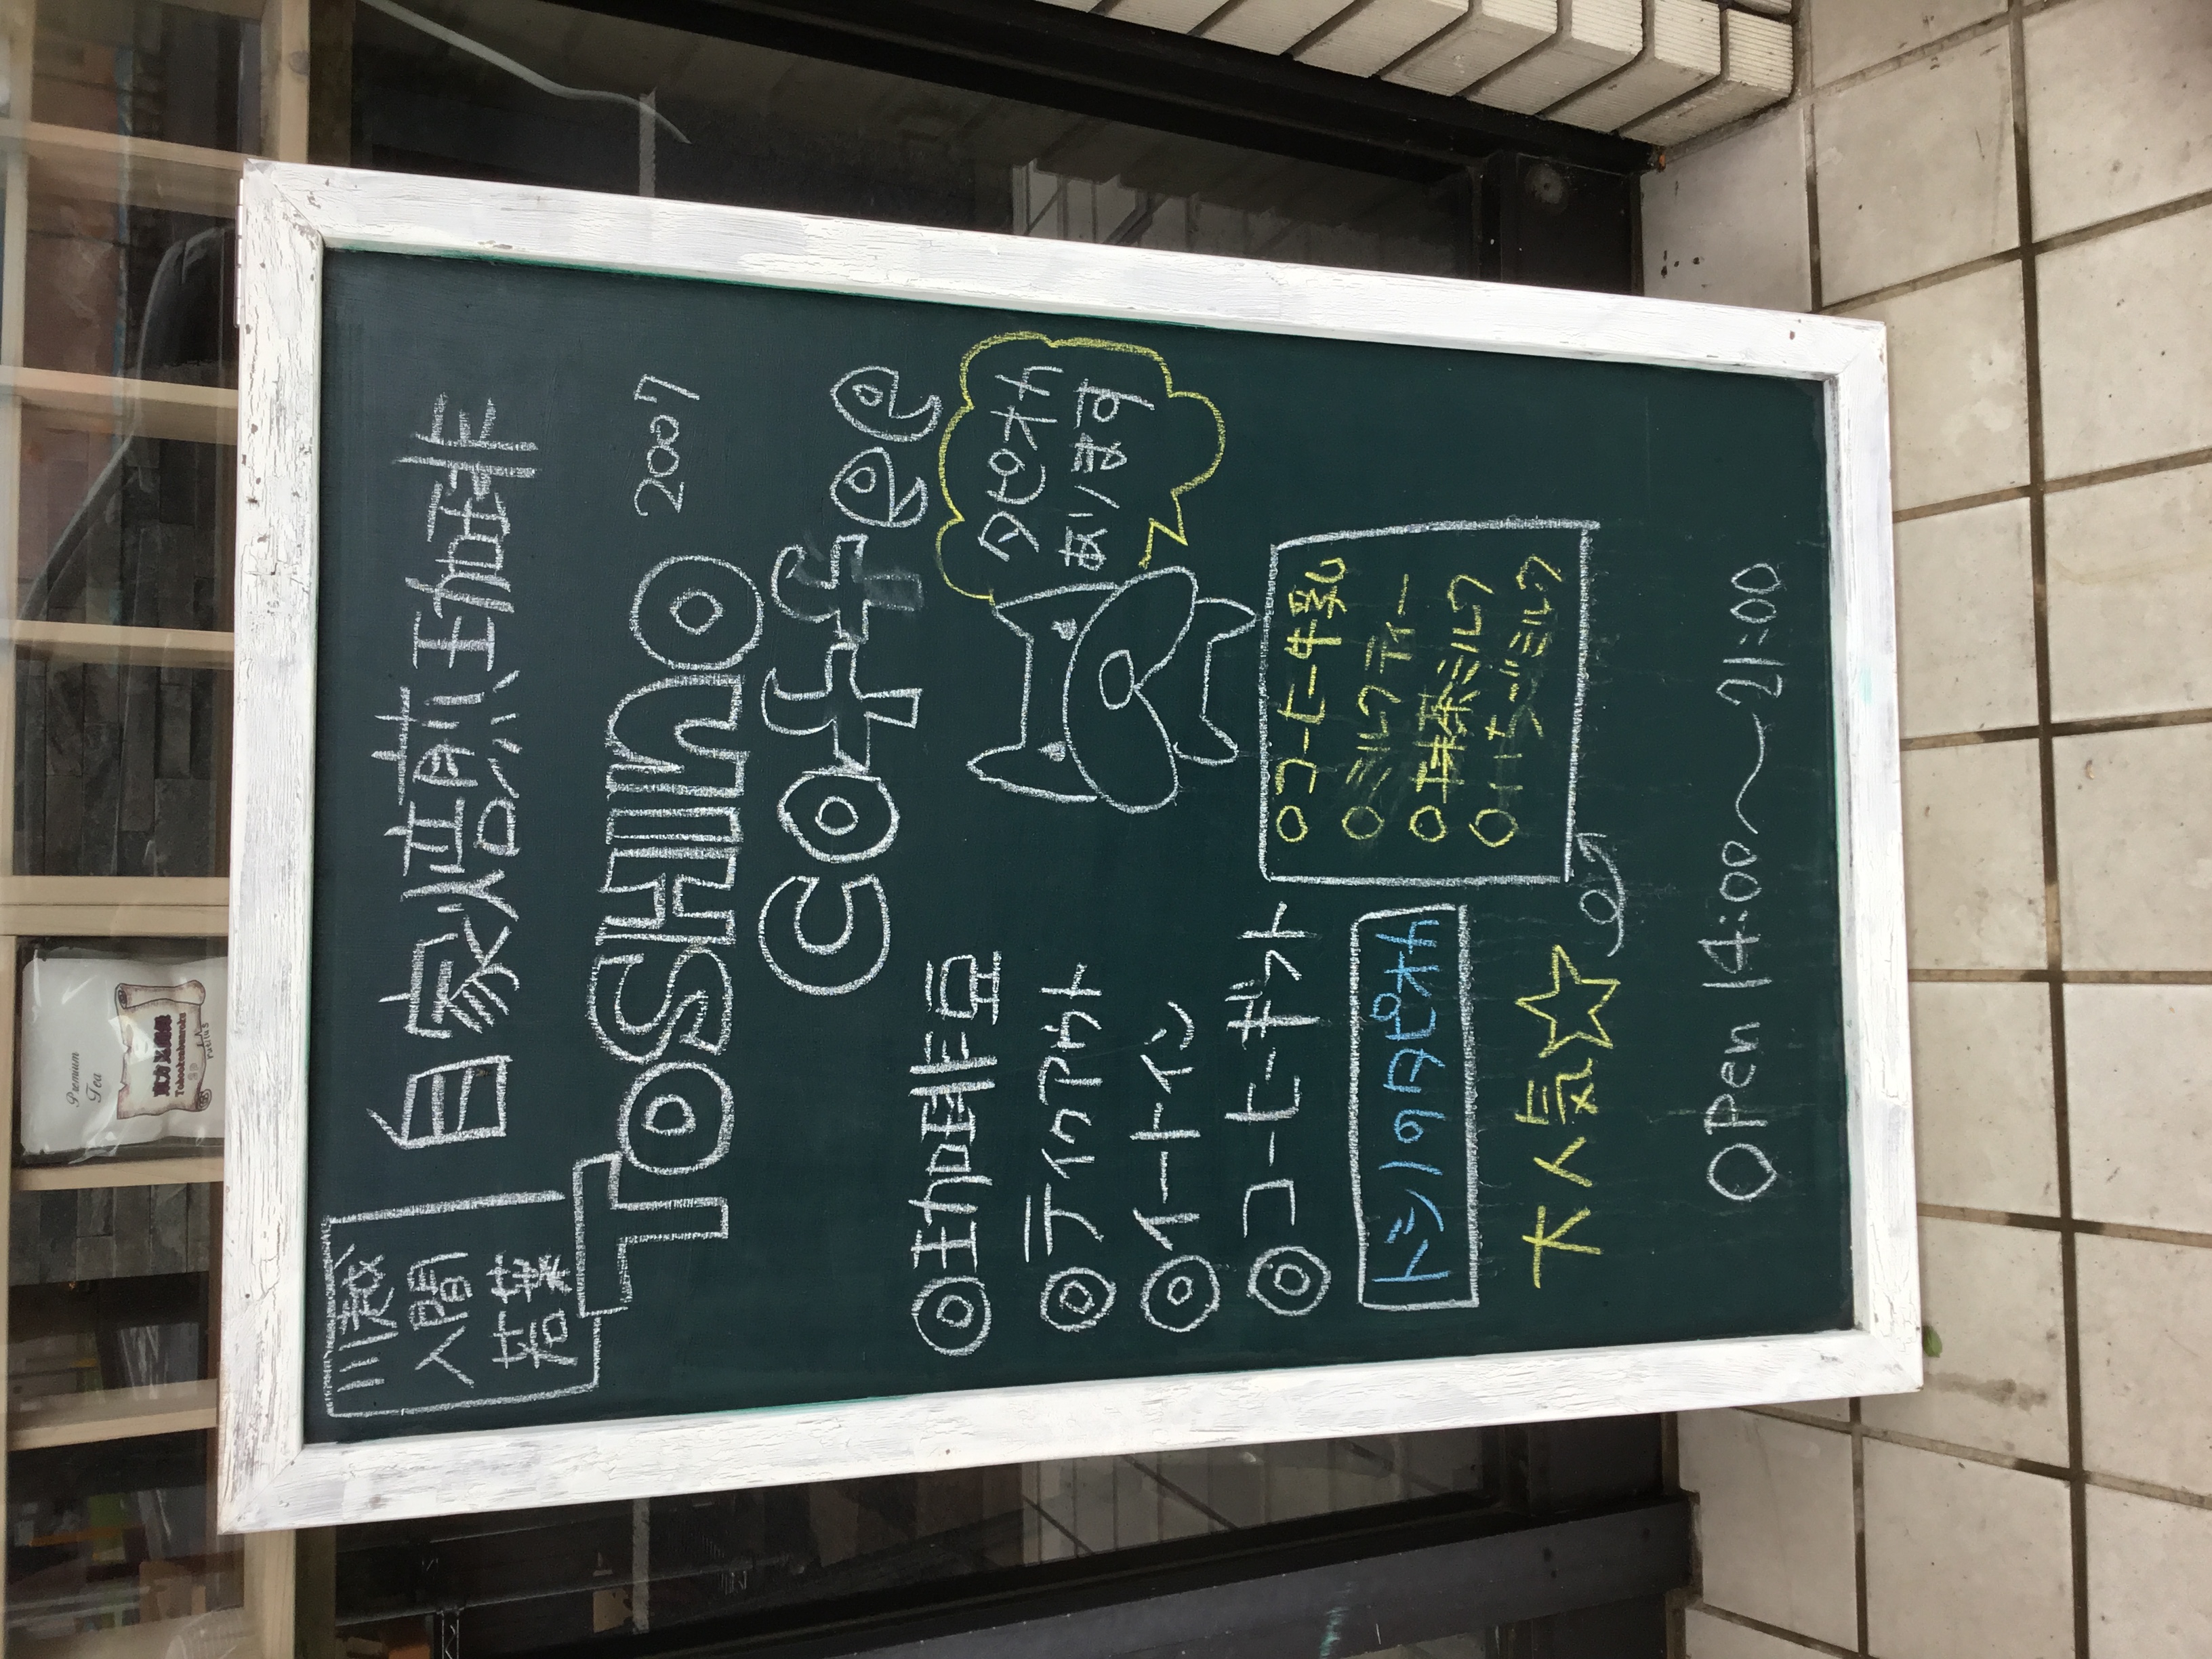 若葉
自家焙煎珈琲
ToSHINO 2007
coffee
タピオカ
あります
◎珈琲豆
◎テイクアウト
◎イートイン
◎コーヒーギフト
トシノタピオカ
大人気☆
○コーヒー牛乳
○ミルクティー
○抹茶ミルク
OPen 14:00〜21:00
Premium
Tea